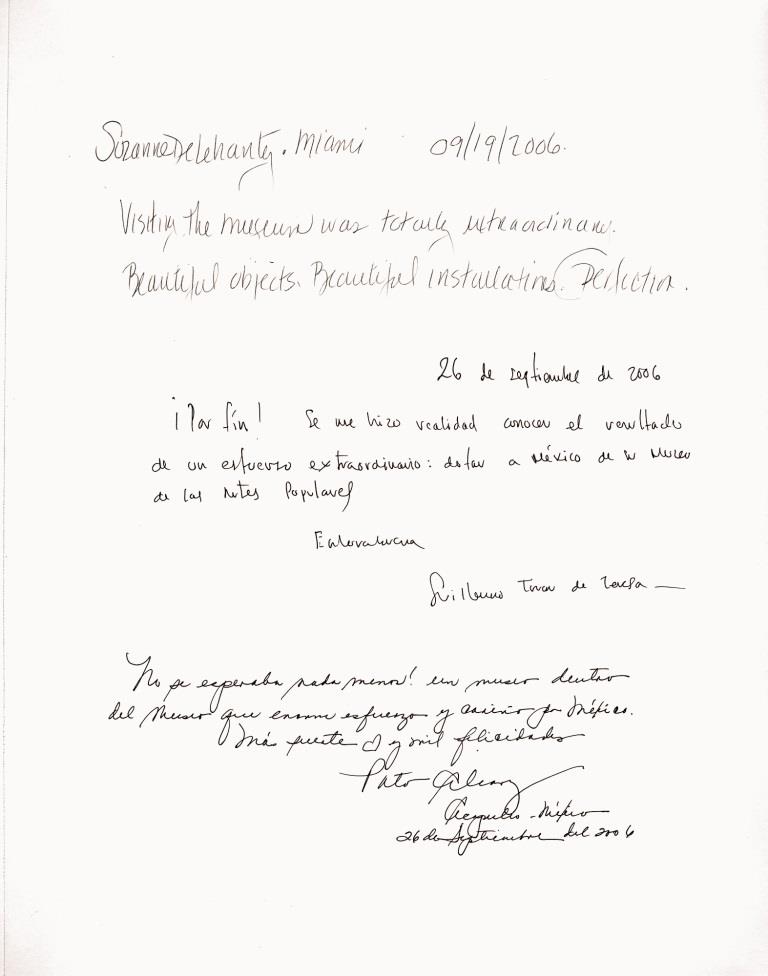 Suzanne Delehanty. Miami 09/19/2006.
Visiting the museum was totally extraordinary.
Beautiful objects. Beautiful installations. Perfection.
26 de septiembre de 2006
¡Por fín! Se me hizo realidad conocer el resultado
de un esfuerzo extraordinario: dotar a México de su Museo
de las Artes Populares
Enhorabuena
Guillermo Tovar de Teresa
No se esperaba nada menor! un museo dentro
del Museo que enorme esfuerzo y cariño por México.
Más fuerte y mil felicidades
Pato
Acapulco - México
26 de Septiembre del 2006